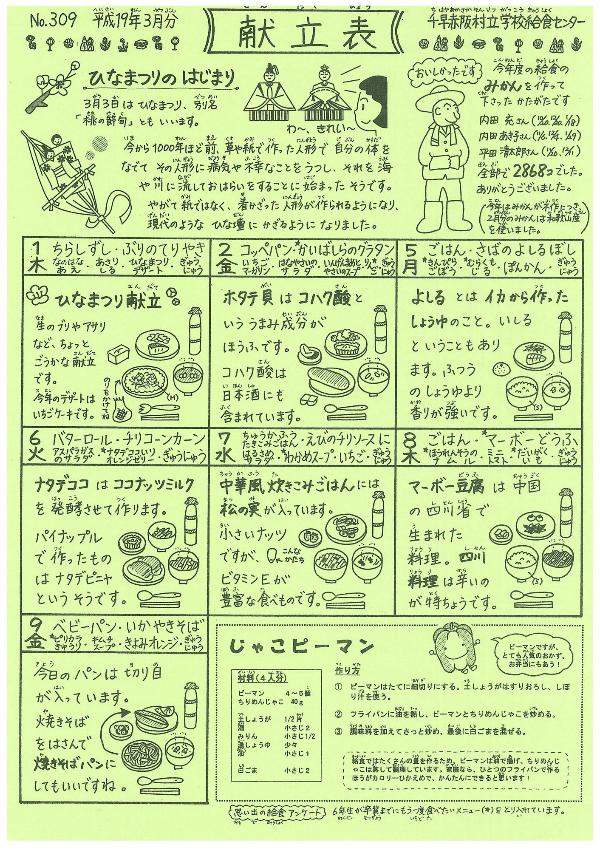 No.309 平成19年3月分
献立表
千早赤阪村立学校給食センター
ひなまつりの はじまり
3月3日は ひなまつり、別名
「桃の節句」とも いいます。
わ〜、きれい〜
今から1000年ほど前、草や紙で作った人形で 自分の体を
なでて その人形に病気や不幸なことをうつし、それを 海
や 川に 流しておはらいをすることに 始まった そうです。
やがて 紙ではなく、着かざった 人形が作られるようになり、
現代のような ひな壇に かざるように なりました。
おいしかったです
今年度の給食の
みかんを作って
下さった かたがたです
内田 充さん
内田 あき子さん
平田 清太郎さん
全部で 2868コでした。
ありがとうございました。
2月分のみかんは和歌山産
を使いました。
1 木 ちらしずし・ぶりのてりやき
なのはなあえ・あさりじる・ひなまつりデザート・ぎゅうにゅう
ひなまつり献立
生のブリやアサリ
など、ちょっと
ごうかな献立
です。
今年のデザートは
いちごケーキです。
2 金 コッペパン・かいばしらのグラタン
いちごマーガリン・はなやさいのサラダ・いんげんまめとやさいのスープ・ぎゅうにゅう
ホタテ貝 は コハク酸と
いう うまみ成分が
ほうふです。
コハク酸は
日本酒にも
含まれています。
5 月 ごはん・さばのよしるぼし
*きんぴらごぼう・むらくもじる・ぽんかん・ぎゅうにゅう
よしる とは イカから作った
しょうゆのこと。いしる
ということもあり
ます。ふつう
のしょうゆより
香りが強いです。
6 火 バターロール・チリコーンカーン
アスパラガスのサラダ・*ナタデココいりオレンジゼリー・ぎゅうにゅう
ナタデココ は ココナッツミルク
を 発酵させて 作ります。
パイナップル
で 作ったもの
は ナタデピニャ
という そうです。
7 水 ちゅうかふうたきこみごはん・えびのチリソースに
はるさめサラダ・*わかめスープ・いちご・ぎゅうにゅう
中華風炊きこみごはんには
松の実が入っています。
小さいナッツ
ですが、
こんなかたち
ビタミンEが
豊富な食べものです。
8 木 ごはん・*マーボーどうふ
*ほうれんそうのナムル・ミニトマト・*だいがくいも・ぎゅうにゅう
マーボー豆腐 は 中国
の 四川省で
生まれた
料理。四川
料理は辛いの
が特ちょうです。
9 金 ベビーパン・いかやきそば
*ピリカラきゅうり・キムチスープ・きよみオレンジ・ぎゅうにゅう
今日のパンは 切り目
が入っています。
焼きそば
をはさんで
焼きそばパンに
してもいいですね。
じゃこピーマン
ピーマンですが、
とても人気のおかず。
お弁当にもあう!
材料(4人分)
ピーマン 4〜5個
ちりめんじゃこ 40g
土しょうが 1/2片
酒 小さじ2
みりん 小さじ1/2
濃しょうゆ 少々
油 小さじ1
白ごま 小さじ2
作り方
① ピーマンはたてに細切りにする。土しょうがはすりおろし、しぼ
り汁を使う。
② フライパンに油を熱し、ピーマンとちりめんじゃこを炒める。
③ 調味料を加えてさっと炒め、最後に白ごまを混ぜる。
給食ではたくさんの量を作るため、ピーマンは油で揚げ、ちりめんじゃ
こは蒸して調味しています。家庭なら、ひとつのフライパンで作る
ほうがカロリーひかえめで、かんたんにできると思います!
思い出の給食アンケート 6年生が卒業までにもう一度食べたいメニュー(*)をとり入れています。